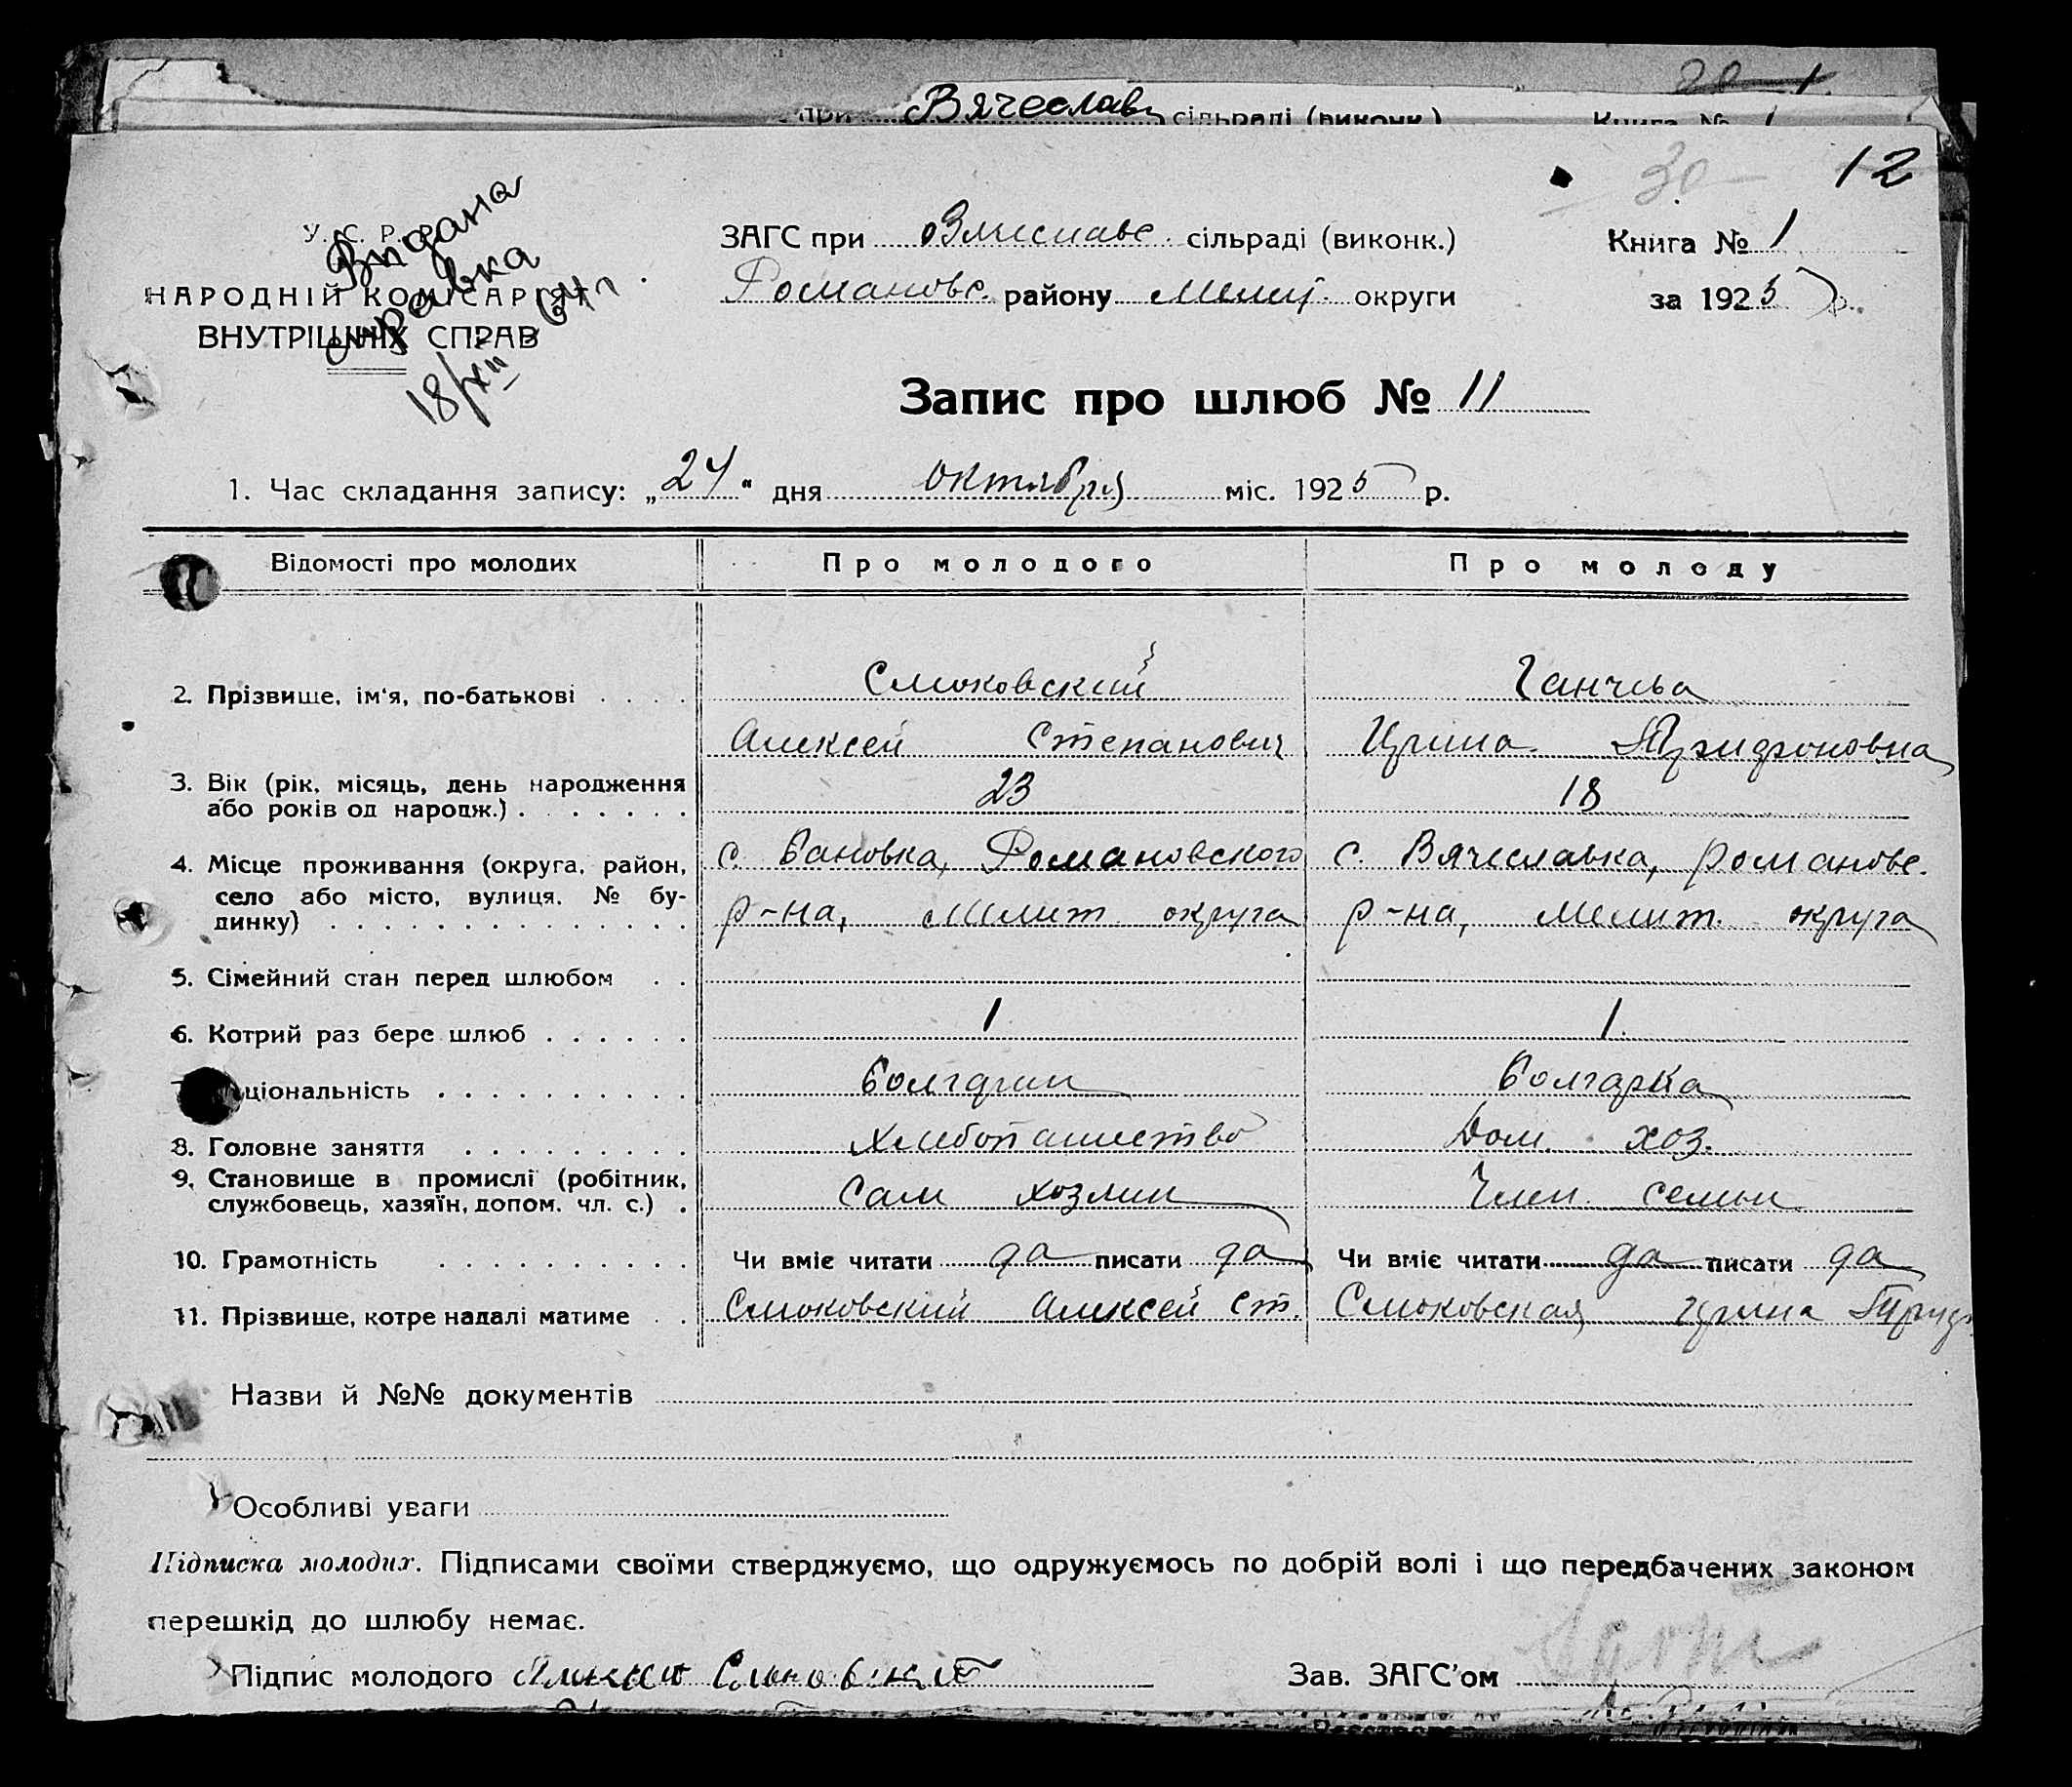 при Вячеславс сільраді (виконк.) Книга № 1
30 12
У. С. Р. Р.
НАРОДНІЙ КОМІСАРІЯТ
ВНУТРІШНІХ СПРАВ
Видана
справка
18/XII - 64 г.
ЗАГС при Вячеславс. сільраді (виконк.) Книга № 1
Романовс. району Мелит. округи за 1925 р.
Запис про шлюб № 11
1. Час складання запису: „24“ дня октября міс. 1925 р.
Відомості про молодих Про молодого Про молоду
2. Прізвище, ім‘я, по-батькові . . . . Смоковский Ганчева
Алексей Степанович Ирина
3. Вік (рік, місяць, день народження 23 18
або років од народж.) . . . . . . .
4. Місце проживання (округа, район, с. Бановка, Романовского с. Вячеславка, Романовс.
село або місто, вулиця, № бу-
динку) . . . . . . . . . . . . . . р-на, Мелит. округа р-на, Мелит. округа
5. Сімейний стан перед шлюбом . .
6. Котрий раз бере шлюб . . . . . . 1 1.
ціональність . . . . . . . . . . Болгарин Болгарка
8. Головне заняття . . . . . . . . . Хлебопашество Дом. хоз.
9. Становище в промислі (робітник, Сам хозяин Член семьи
службовець, хазяїн, допом. чл. с.) .
10. Грамотність . . . . . . . . . . Чи вміє читати да писати да Чи вміє читати да писати да
11. Прізвище, котре надалі матиме . . Смоковский Алексей Ст. Смоковская Ирина
Назви й №№ документів
Особливі уваги
Підписка молодих. Підписами своїми стверджуємо, що одружуємось по добрій волі і що передбачених законом
перешкід до шлюбу немає.
Підпис молодого Зав. ЗАГС’ом